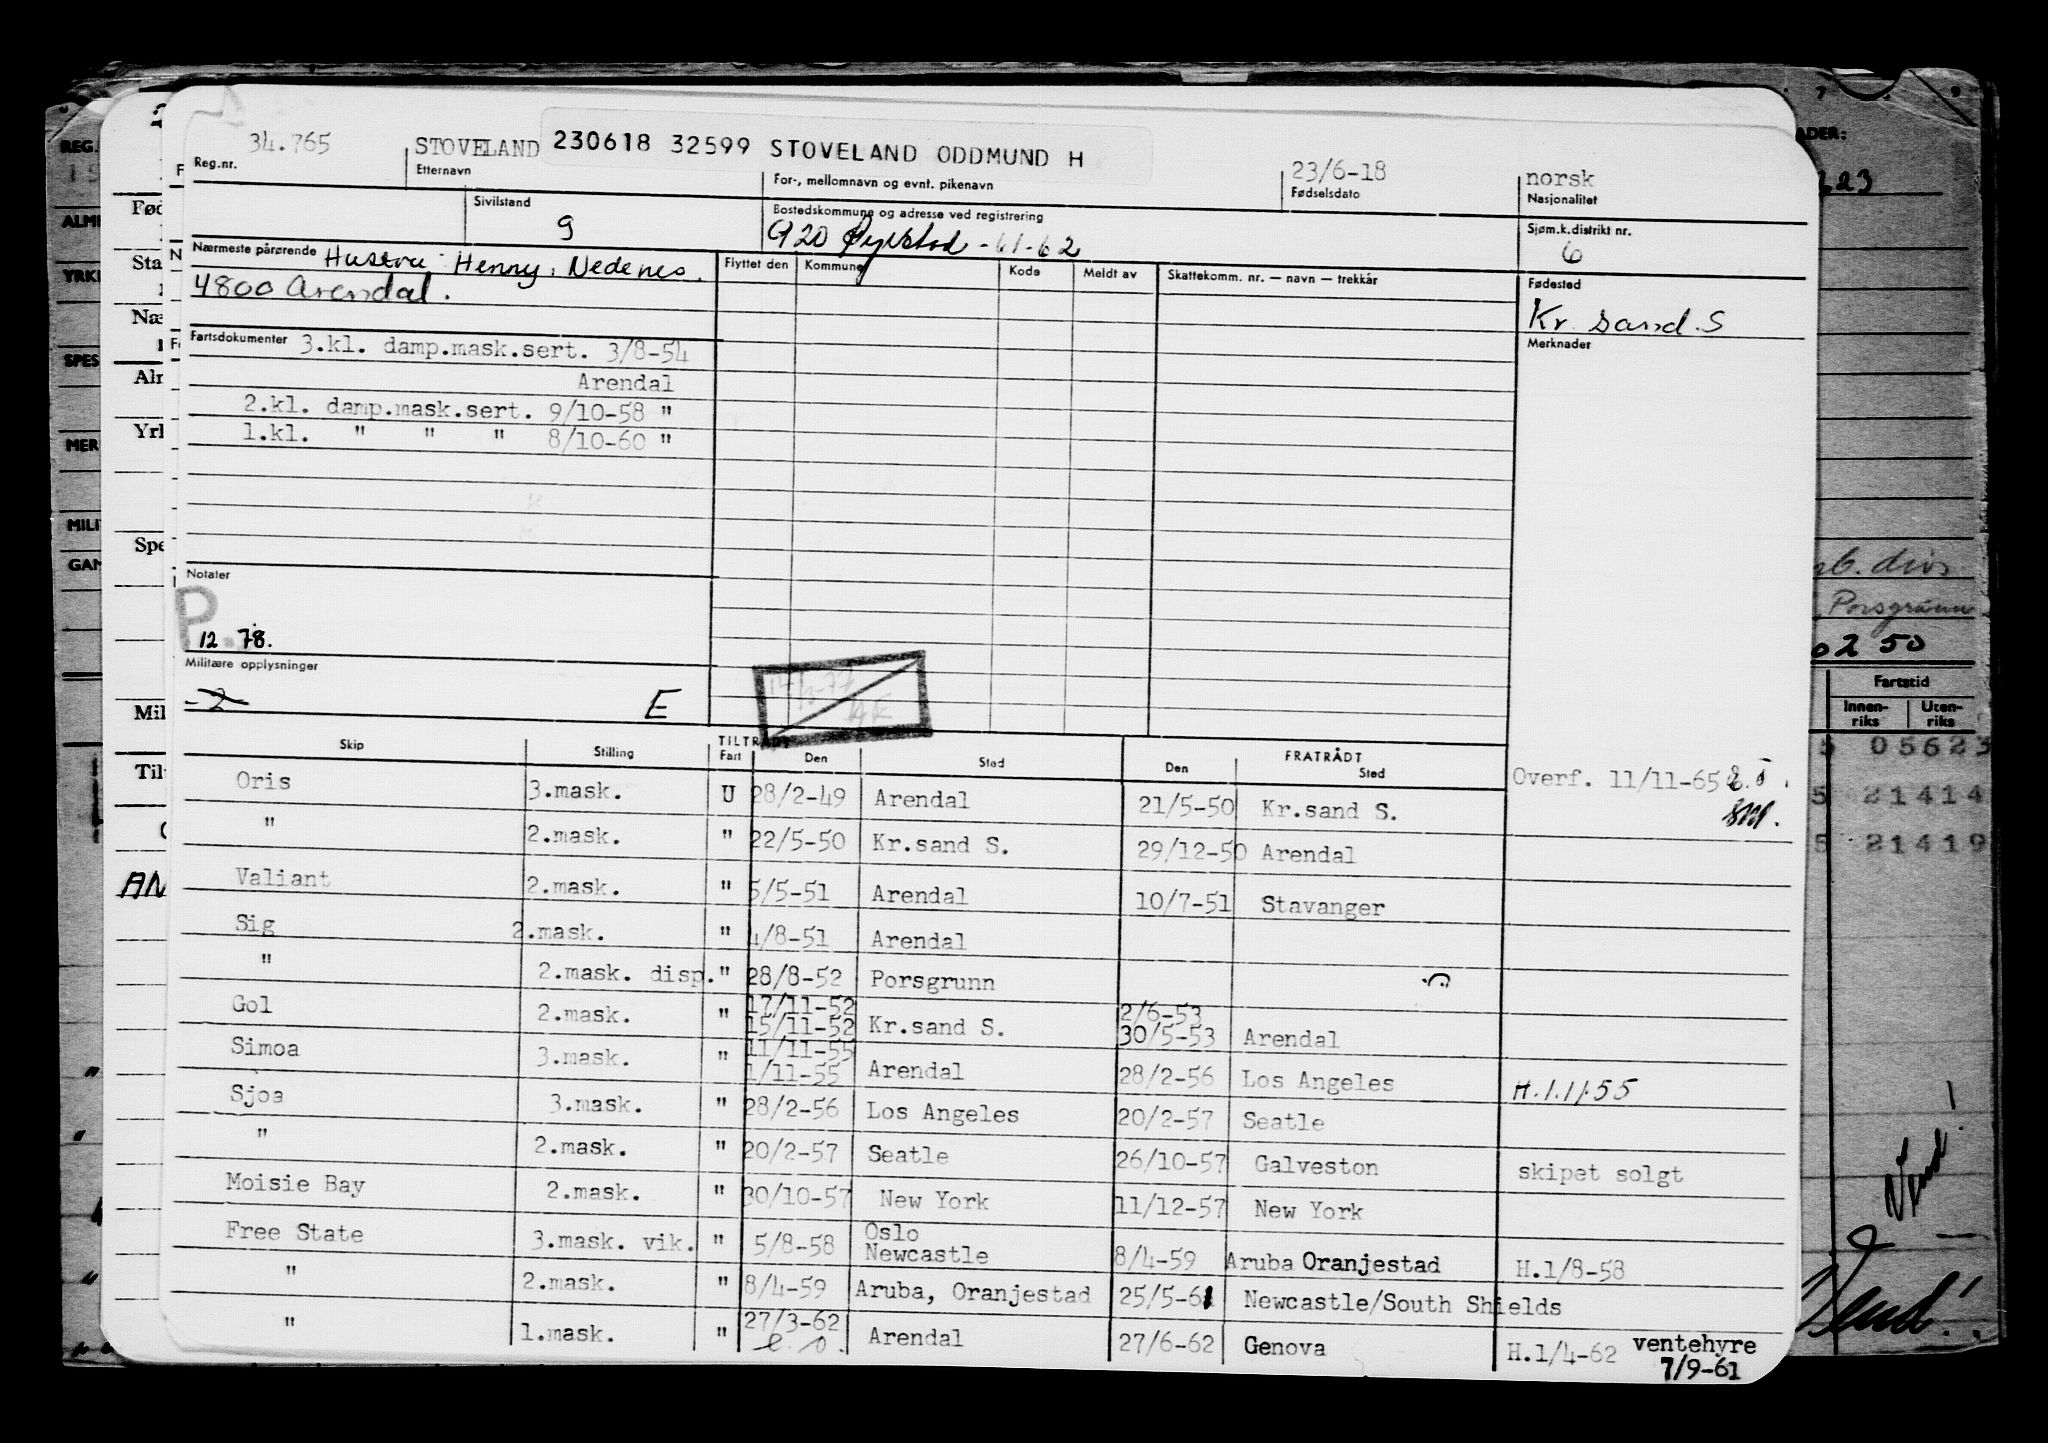 34.765 STOVELAND 230618 32599 STOVELAND ODDMUND H 23/6-18 norsk
Reg.nr. Etternavn For-, mellomnavn og evnt. pikenavn Fødselsdato Nasjonalitet
Sivilstand g Bostedskommune og adresse ved registrering Sjøm.k.distrikt nr.
920 Øyestad -61-62 6
Nærmeste pårørende Hustru Henny, Nedenes. Flyttet den Kommune Kode Meldt av Skattekomm. nr. — navn — trekkår Fødested
4800 Arendal. Kr. sand. S
Fartsdokumenter 3.kl. damp.mask.sert. 3/8-54 Merknader
Arendal
2.kl. damp.mask.sert. 9/10-58 "
1.kl. " " " 8/10-60 "
Notater
P.
12 78.
Militære opplysninger
-2 E
Skip Stilling TILTRÅDT FRATRÅDT
Fart Den Sted Den Sted
Overf. 11/11-65
Oris 3.mask. U 28/2-49 Arendal 21/5-50 Kr.sand S.
" 2.mask. " 22/5-50 Kr.sand S. 29/12-50 Arendal
Valiant 2.mask. " 5/5-51 Arendal 10/7-51 Stavanger
Sig 2.mask. " 4/8-51 Arendal
" 2.mask. disp. " 28/8-52 Porsgrunn
Gol 2.mask. " 17/11-52 2/6-53
15/11-52 Kr.sand S. 30/5-53 Arendal
Simoa 3.mask. " 11/11-55
1/11-55 Arendal 28/2-56 Los Angeles H.1.11.55
Sjoa 3.mask. " 28/2-56 Los Angeles 20/2-57 Seatle
" 2.mask. " 20/2-57 Seatle 26/10-57 Galveston skipet solgt
Moisie Bay 2.mask. " 30/10-57 New York 11/12-57 New York
Free State 3.mask. vik. " 5/8-58 Oslo
Newcastle 8/4-59 Aruba Oranjestad H.1/8-58
" 2.mask. " 8/4-59 Aruba, Oranjestad 25/5-61 Newcastle/South Shields
" 1.mask. " 27/3-62 Arendal 27/6-62 Genova H.1/4-62 ventehyre
7/9-61
REG.
ALM
YRK
SPES
MER
MILI
GAN
Fød
Sta
Næ
Alr
Yrl
Spe
Mil
Til
AN
223
Porsgrunn
0250
Fartstid
Innen-riks Uten-riks
5 05623
5 21414
5 21419